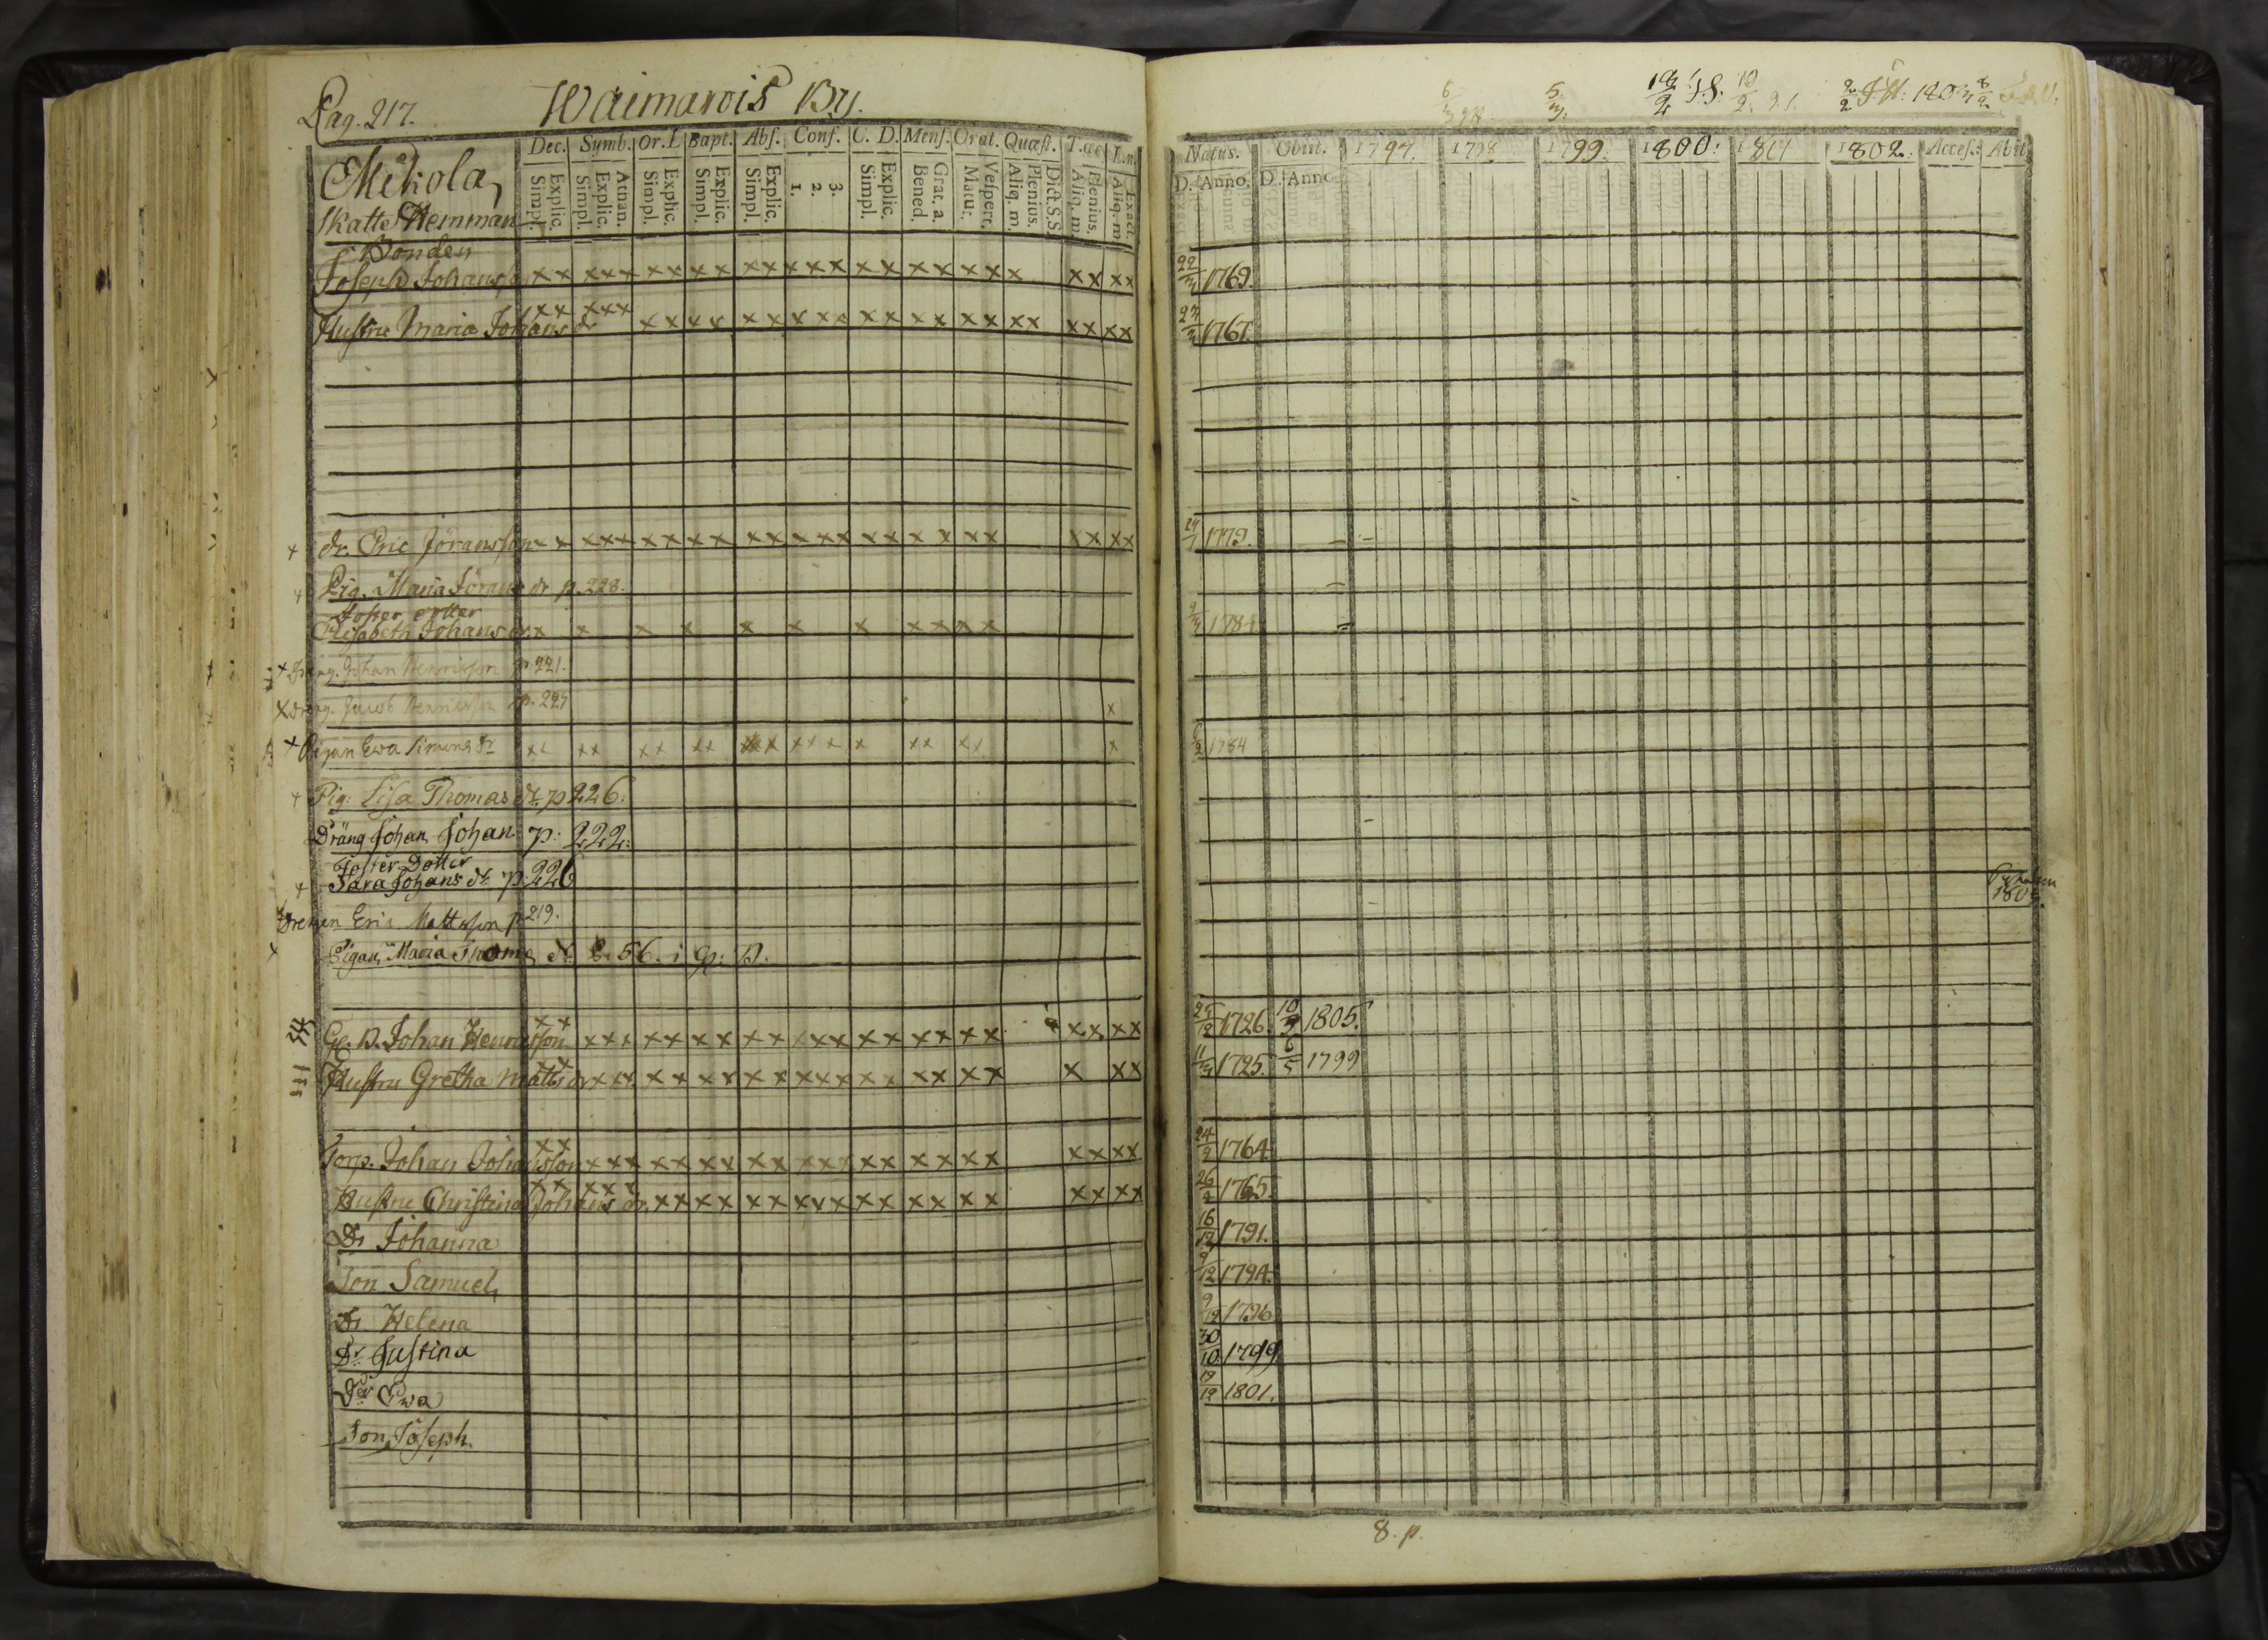 Pag. 217. Waimarois By.
Dec. Symb. Or. D Bapt. Abs. Conf. C. D. Mens. Orat. Quæst. T. œc L.n.
Simpl. Explic. Simpl. Explic. Athan. Simpl. Explic. Simpl. Explic. Simpl. Explic. 1. 2. 3. Simpl. Explic. Bened. Grat. a. Matut. Vespert. Aliq. m. Plenius. Dict. S.S. Aliq. m Plenius. Aliq. m Exact.
Mikola
Skatte Hemman
Bonden
Joseph Johansson x x x x x x x x x x x x x x x x x x x x x x x x x
Hustru Maria Johans dr x x x x x x x x x x x x x x x x x x x x x x x x x x
dr. Eric Jöransson x x x x x x x x x x x x x x x x x x x x x x x x
Pig. Maria Jörans dr p. 228.
Foster dotter
Elisabeth Johans dr x x x x x x x x x x x
Dräng. Johan Henricsson p. 221.
Dräng. Jacob Henricsson p. 227 x
Pigan Ewa Simons dr xx xx xx xx xx xxx x xx xx x
Pig: Lisa Thomas dr. p 226.
Dräng Johan Johan. p: 222:
Foster Dotter
Sara Johans dr p. 226
Drengen Eric Mattsson p 219.
Pigan Maria Thoma dr 56. i G: B.
Ge. B. Johan Henricsson x x x x x x x x x x x x x x x x x x x x x x x x
Hustru Gretha Matts dr x x x x x x x x x x x x x x x x x x x x x x x
Torp. Johan Johansson x x x x x x x x x x x x x x x x x x x x x x x x
Hustru Christina Johans dr. x x x x x x x x x x x x x x x x x x x x x x x x
Dr Johanna
Son Samuel
Dr. Helena
Dr. Justina
Dr Ewa
Son Joseph
Natus. Obiit. 1797. 1798 1799. 1800. 1801 1802. Acces. Abit
D. Anno. D. Anno
1769.
1767.
24/7 1779.
1784
6/2 1784
1805.
1726. 1805.
1725. 1799
24/2 1764.
26/2 1765.
16/12 1791.
9/12 1794.
9/12 1796
30/10 1799.
19/12 1801.
8. p.